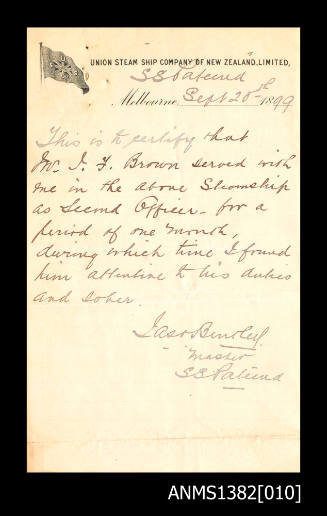 UNION STEAM SHIP COMPANY OF NEW ZEALAND, LIMITED,
SS Pateena
Melbourne Sept 20th 1899
This is to certify that
Mr. I. F. Brown served with
me in the above Steamship
as Second Officer - for a
period of one month,
during which time I found
him attentive to his duties
and sober.
Jas
Master
SS Pateena
ANMS1382[010]